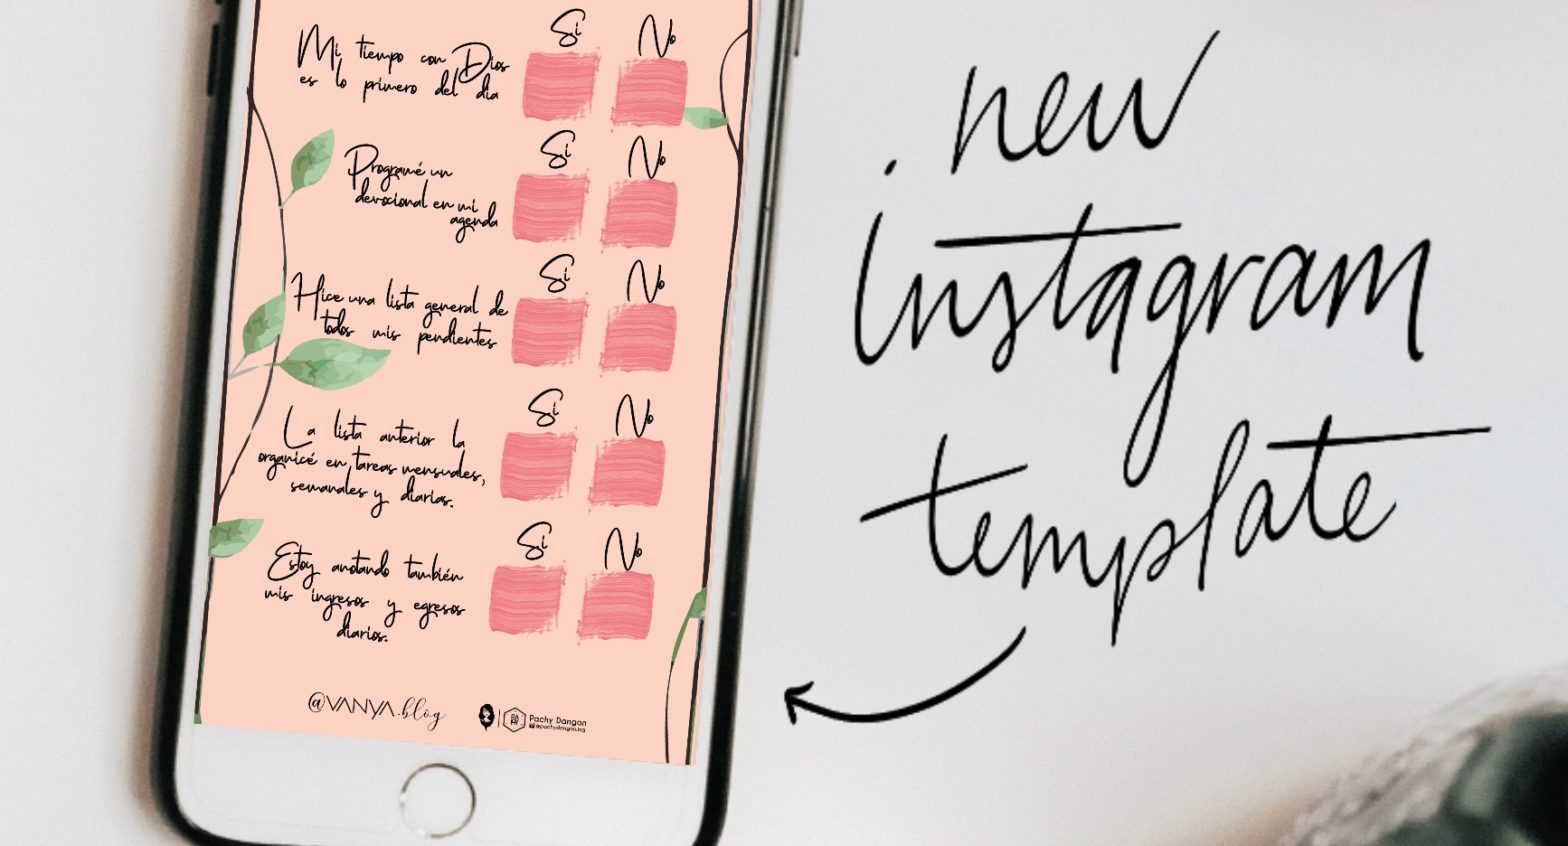 Si No
Mi tiempo con Dios
es lo primero del dia
Si No
Programé un
devocional en mi
agenda
Si No
Hice una lista general de
todos mis pendientes
Si No
La lista anterior la
organicé en tareas mensuales,
semanales y diarias.
Si No
Estoy anotando también
mis ingresos y egresos
diarios.
@VANYA.blog
Pachy Dangon
new
instagram
template